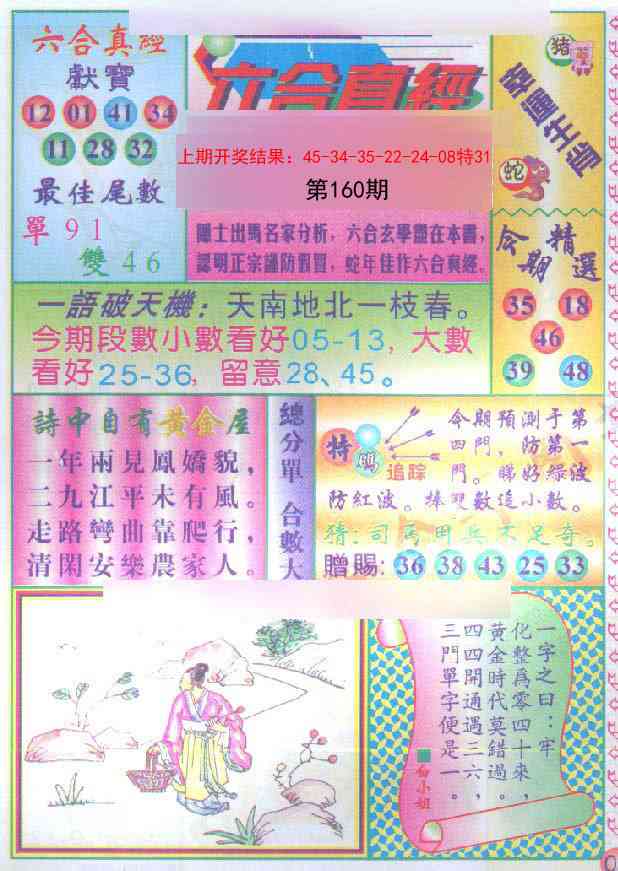 六合真經
獻寶
12 01 41 34
11 28 32
最佳尾數
單91
雙46
六合真經
上期开奖结果：45-34-35-22-24-08特31
第160期
圖士出馬名家分析，六合玄學盡在本書，
認明正宗謹防假冒，蛇年佳作六合真經。
猪
蛇
今期精選
35 18
46
39 48
一語破天機：天南地北一枝春。
今期段數小數看好05-13，大數
看好25-36，留意28、45。
詩中自有黃金屋
一年兩見鳳嬌貌，
二九江平未有風。
走路彎曲靠爬行，
清閑安樂農家人。
總分單 合數大
特碼
追踪
今期預測于第
四門，防第一
門。睇好绿波
防紅波。捧雙數追小數。
猜：司馬用兵不足奇。
贈賜：36 38 43 25 33
一字之曰：牢
化整爲零四十來，
黃金時代莫錯過，
四四開通遇三六，
三門單字便是一。
白小姐